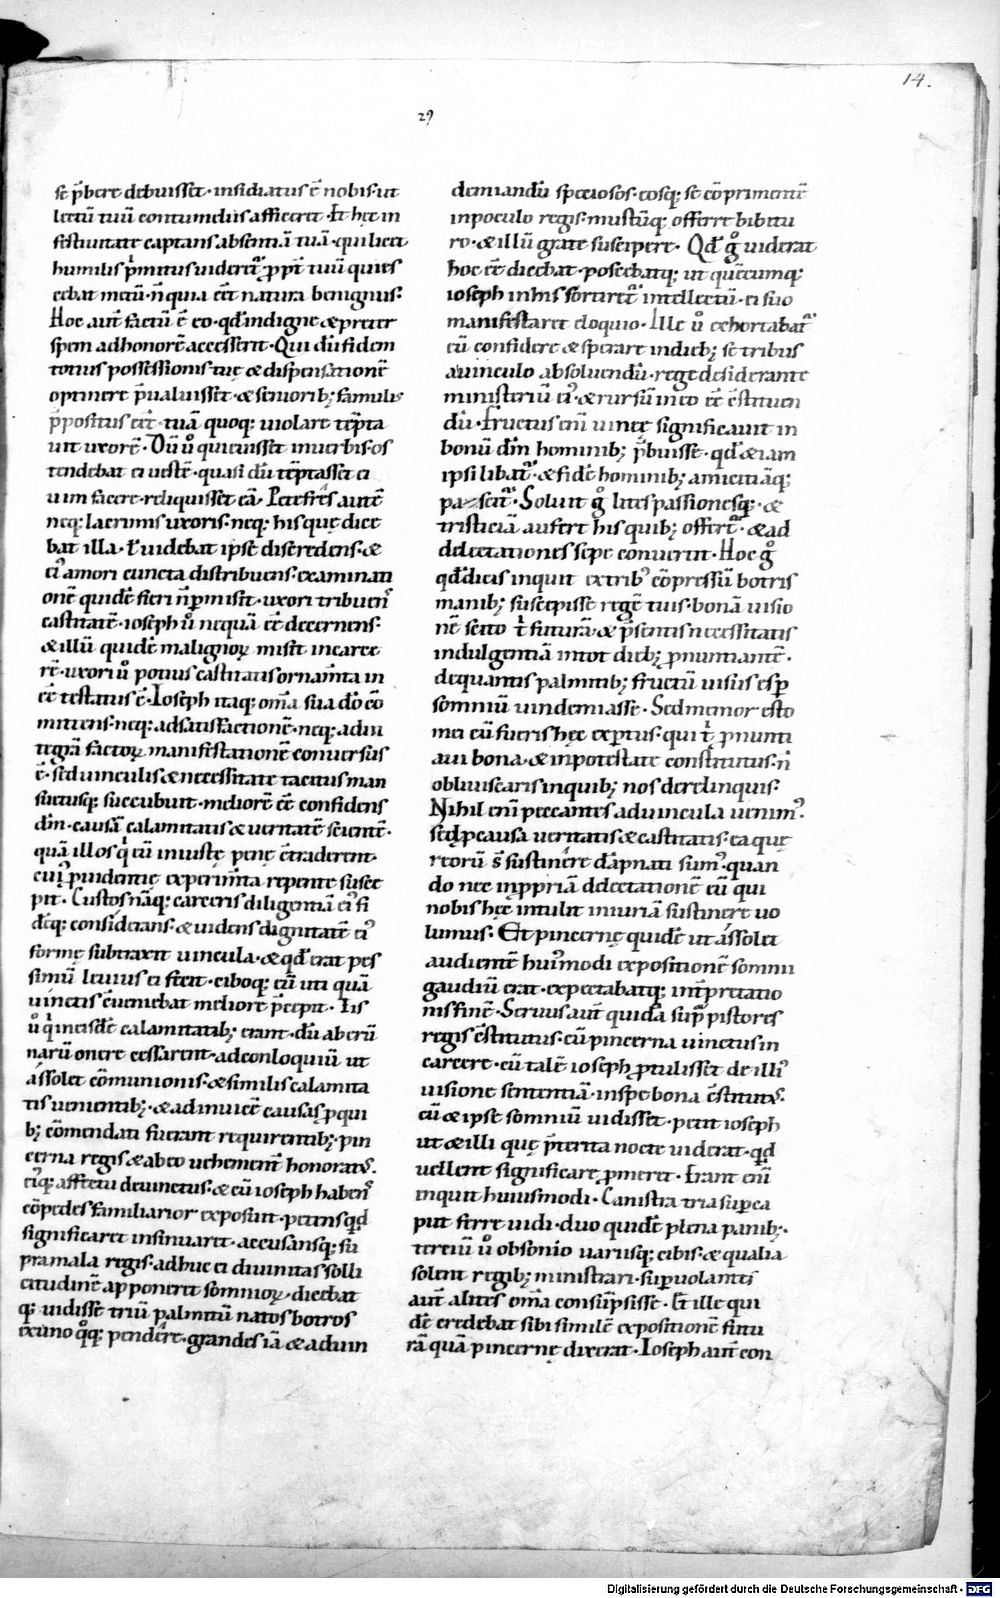 14.
29
se p̄bere debuisset · insidiatus ē nobis · ut
lectū tuū contumeliis afficeret · Et hęc in
festiuitate captans absentiā tuā · qui licet
humilis p̄mitus uideret᷑ ꝓpt̄ tuū quies
cebat metū · n̄ quia eēt natura benignus ·
Hoc aut̄ factū ē eo · qd̄ indigne & preter
spem ad honorē accesserit · Qui dū fidem
totius possessionis tuę & dispensationē
optinere p̄ualuisset · & seniorib; famulis
p̄positus eēt · tuā quoq; uiolare tēpta
uit uxorē · Dū ů quieuisset in uerbis · os
tendebat ei uestē · quasi dū tēptasset ei
uim facere · reliquisset eā · Petefrēs autē
neq; lacrimis uxoris · neq; his quę dice
bat illa · ł uidebat ipse discredens · &
ei᷒ amori cuncta distribuens · examinati
onē quidē fieri n̄ p̱misit · uxori tribuens
castitatē · ioseph ů nequā eē decernens ·
& illū quidē malignoꝝ misit in carce
rē · uxori ů potius castitatis ornam̄ta in
eē testatus ē · Ioseph itaq; om̄a sua dō cō
mittens · neq; ad satisfactionē · neq; ad in
tegrā factoꝝ manifestationē conuersus
ē · sed uinculis & necessitate tacitus man
suetusq; succubuit · meliorē eē confidens
dm̄ · causā calamitatis & ueritatē scientē ·
quā illos qͥ eū iniuste pene c̄traderent ·
cui᷒ ꝓuidentię experim̄ta repente susce
pit · Custos nāq; carceris diligentiā ei᷒ fi
dēq; considerans · & uidens dignitatē ei᷒
formę subtraxit uincula · & qd̄ erat pes
simū leuius ei fecit · ciboq; eū uti quā
uinctis c̄ueniebat meliore p̄cepit · Iis
ů qͥ in eisdē calamitatib; erant · dū ab eru
narū onere cessarent · ad conloquiū ut
assolet cōmunionis · & similis calamita
tis uenientib; · & ad inuicē causas ꝓ qui
b; cōmendati fuerant requirentib; · pin
cerna regis & ab eo uehement̄ honorat᷒ ·
ei᷒q; affectu deuinctus · & cū ioseph habens
cōpedes familiarior exposuit · petens qḏ
significaret insinuaret · accusansq; su
pra mala regis · adhuc ei diuinitas solli
citudinē apponeret somnioꝝ · dicebat
q; uidisse triū palmitū natos botros
ex uno qͦq; pendēre · grandes iā & ad uin
demiandū speciosos · eosq; se cōprimentē
in poculo regis · mustūq; offerre bibitu
ro · & illū grate suscipere · Qd̄ gͦ uiderat
hoc eē dicebat · poscebatq; ut quęcumq;
ioseph in his sortiret᷑ intellectū · ei suo
manifestaret eloquio · Ille ů exhortabat᷑
eū confidere & sperare in dieb; se tribus
a uinculo absoluendū · rege desiderante
ministeriū ei᷒ · & rursū in eo eē c̄stituen
dū · Fructus eni uinee significauit in
bonū dm̄ hominib; p̄buisse · qd̄ & iam
ipsi libat᷑ · & fidē hominib; amicitiāq;
pascit᷑ · Soluit gͦ lites passionesq; · &
tristiciā aufert his quib; offert᷑ · & ad
delectationes sepe conuertit · Hoc gͦ
qd̄ dicis inquit ex trib᷒ cōpressū botris
manib; suscepisse regē tuis · bonā uisio
nē scito t̄ futurā · & p̄sentis necessitatis
indulgentiā in tot dieb; ꝓnuntiantē ·
de quantis palmitib; fructū uisus es ꝑ
somniū uindemiasse · Sed memor esto
mei cū fueris hęc exp̱tus · qui t̄ ꝓnunti
aui bona · & in potestate constitutus · n̄
obliuiscaris in quib; nos derelinquis ·
Nihil eni peccantes ad uincula uenim᷒ ·
sed ꝓ causa ueritatis & castitatis · ea quę
reorū s̄ sustinere dāpnati sum᷒ · quan
do nec in ꝓpriā delectationē eū qui
nobis hęc intulit iniuriā sustinere uo
lumus · Et pincernę quidē ut assolet
audientē hui᷒modi expositionē somnii
gaudiū erat · expectabatq; int̄pretatio
nis finē · Seruus aut̄ quidā sup̱ pistores
regis c̄stitutus · cū pincerna uinctus in
carcere · cū talē ioseph ꝓtulisset de illi᷒
uisione sententiā · in spe bona c̄stitut᷒ ·
cū & ipse somniū uidisset · petit ioseph
ut & illi quę p̄terita nocte uiderat · qḏ
uellent significare ꝓmeret · Erant eni
inquit huiusmodi · Canistra tria sup̱ ca
put ferre uidi · duo quidē plena panib; ·
terciū ů obsonio uariisq; cibis · & qualia
solent regib; ministrari · sup̱uolantes
aut̄ alites om̄a consūpsisse · Et ille qui
dē credebat sibi similē expositionē futu
rā quā pincernę dixerat · Ioseph aut̄ con
Digitalisierung gefördert durch die Deutsche Forschungsgemeinschaft - DFG